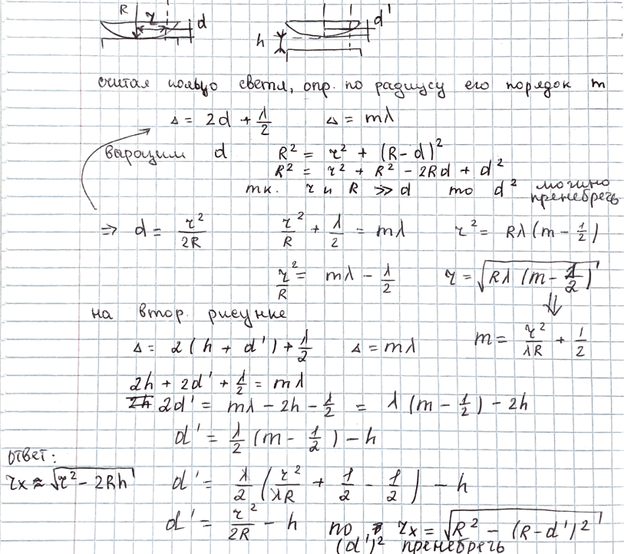 R r d
h d'
считая кольцо светл, опр. по радиусу его порядок m
Δ = 2d + λ/2 Δ = mλ
варазим d R² = r² + (R-d)²
R² = r² + R² - 2Rd + d²
тк. r и R ≫ d то d² можно пренебречь
⇒ d = r²/2R r²/R + λ/2 = mλ r² = Rλ(m - 1/2)
r²/R = mλ - λ/2 r = √(Rλ(m - 1/2))
⇓
на втор. рисунке m = r²/λR + 1/2
Δ = 2(h + d') + λ/2 Δ = mλ
2h + 2d' + λ/2 = mλ
2d' = mλ - 2h - λ/2 = λ(m - 1/2) - 2h
d' = λ/2 (m - 1/2) - h
ответ:
rx ≈ √(r² - 2Rh) d' = λ/2 (r²/λR + 1/2 - 1/2) - h
d' = r²/2R - h по rx = √(R² - (R-d')²)
(d')² пренебречь